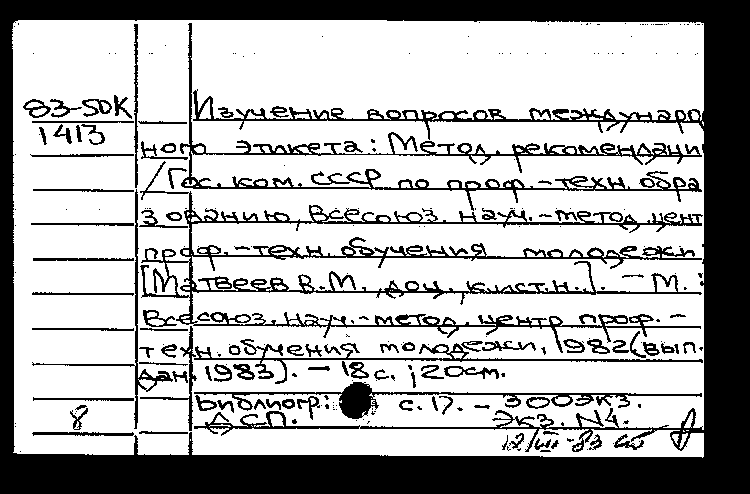 83-5DK
1413
Изучение вопросов междунаро
ного этикета: Метод. рекомендации
/Гос. ком. СССР по проф.-техн. обра
зованию, Всесоюз. науч.-метод. цент
проф.-техн. обучения молодежи;
[Матвеев В.М., доц., к.ист.н.]. - М.:
Всесоюз. науч.-метод. центр проф.-
техн. обучения молодежи, 1982(вып.
дан. 1983). - 18 с.; 20см.
Библиогр.: с. 17. - 300экз.
ДСП. Экз. N4.
8
12/III-83